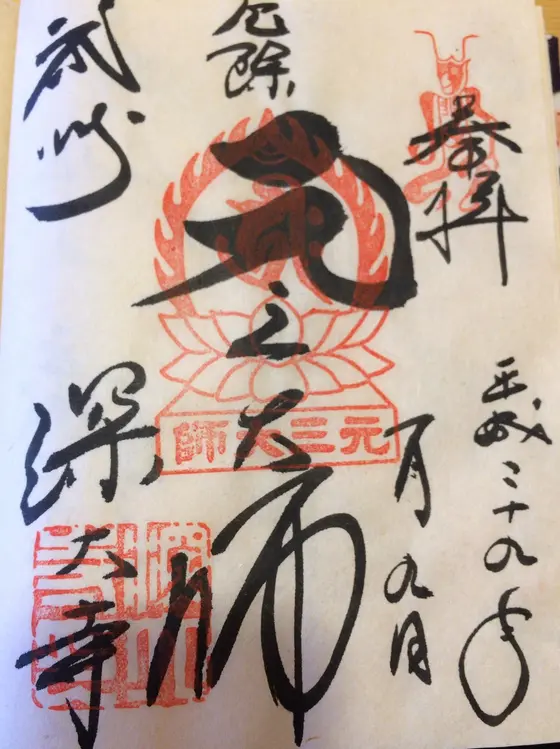 奉拝
平成二十九年
一月九日
厄除
元三大師
元三大師
武州
深大寺